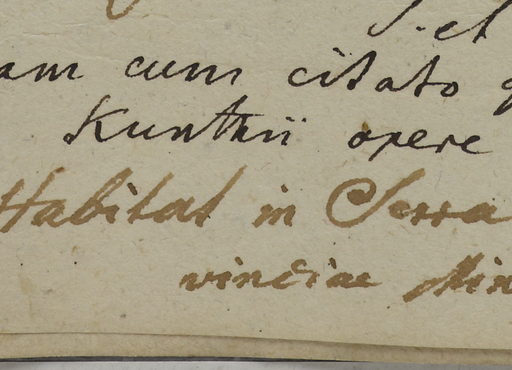 am cum citato
Kunthii opere
Habitat in Serra
vinciae Min